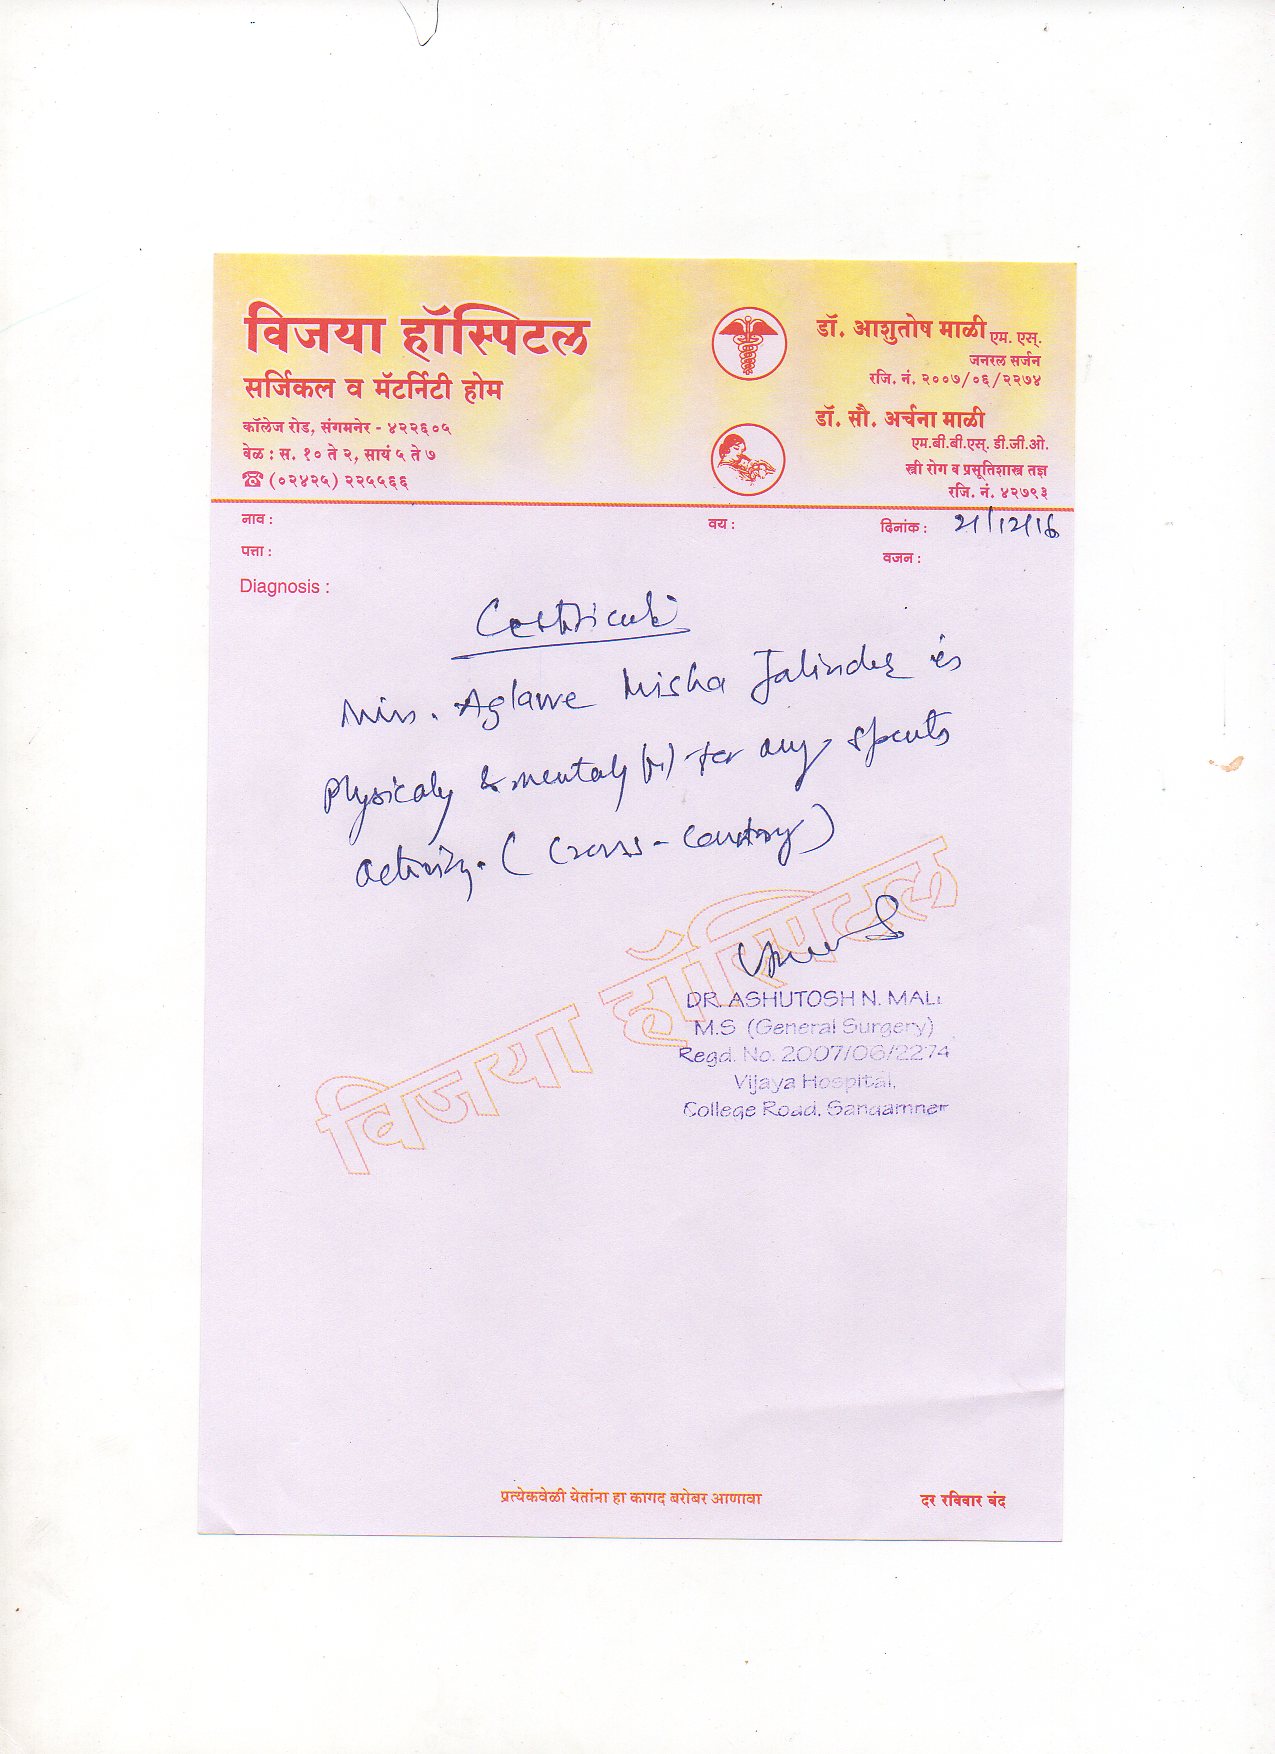 विजया हॉस्पिटल
सर्जिकल व मॅटर्निटी होम
कॉलेज रोड, संगमनेर - ४२२६०५
वेळ : स. १० ते २, सायं ५ ते ७
☎ (०२४२५) २२५५६६
डॉ. आशुतोष माळी एम. एस्.
जनरल सर्जन
रजि. नं. २००७/०६/२२७४
डॉ. सौ. अर्चना माळी
एम.बी.बी.एस्. डी.जी.ओ.
स्त्री रोग व प्रसूतिशास्त्र तज्ञ
रजि. नं. ४२७९३
नाव : वय : दिनांक : 21/12/16
पत्ता : वजन :
Diagnosis :
Certificate
Miss. Aglawe Nisha Jalinder is
Physicaly & mentaly fit for any sports
activity. ( Cross - Country )
विजया हॉस्पिटल
DR. ASHUTOSH N. MALI
M.S (General Surgery)
Regd. No. 2007/06/2274
Vijaya Hospital,
College Road, Sangamner
प्रत्येकवेळी येतांना हा कागद बरोबर आणावा दर रविवार बंद